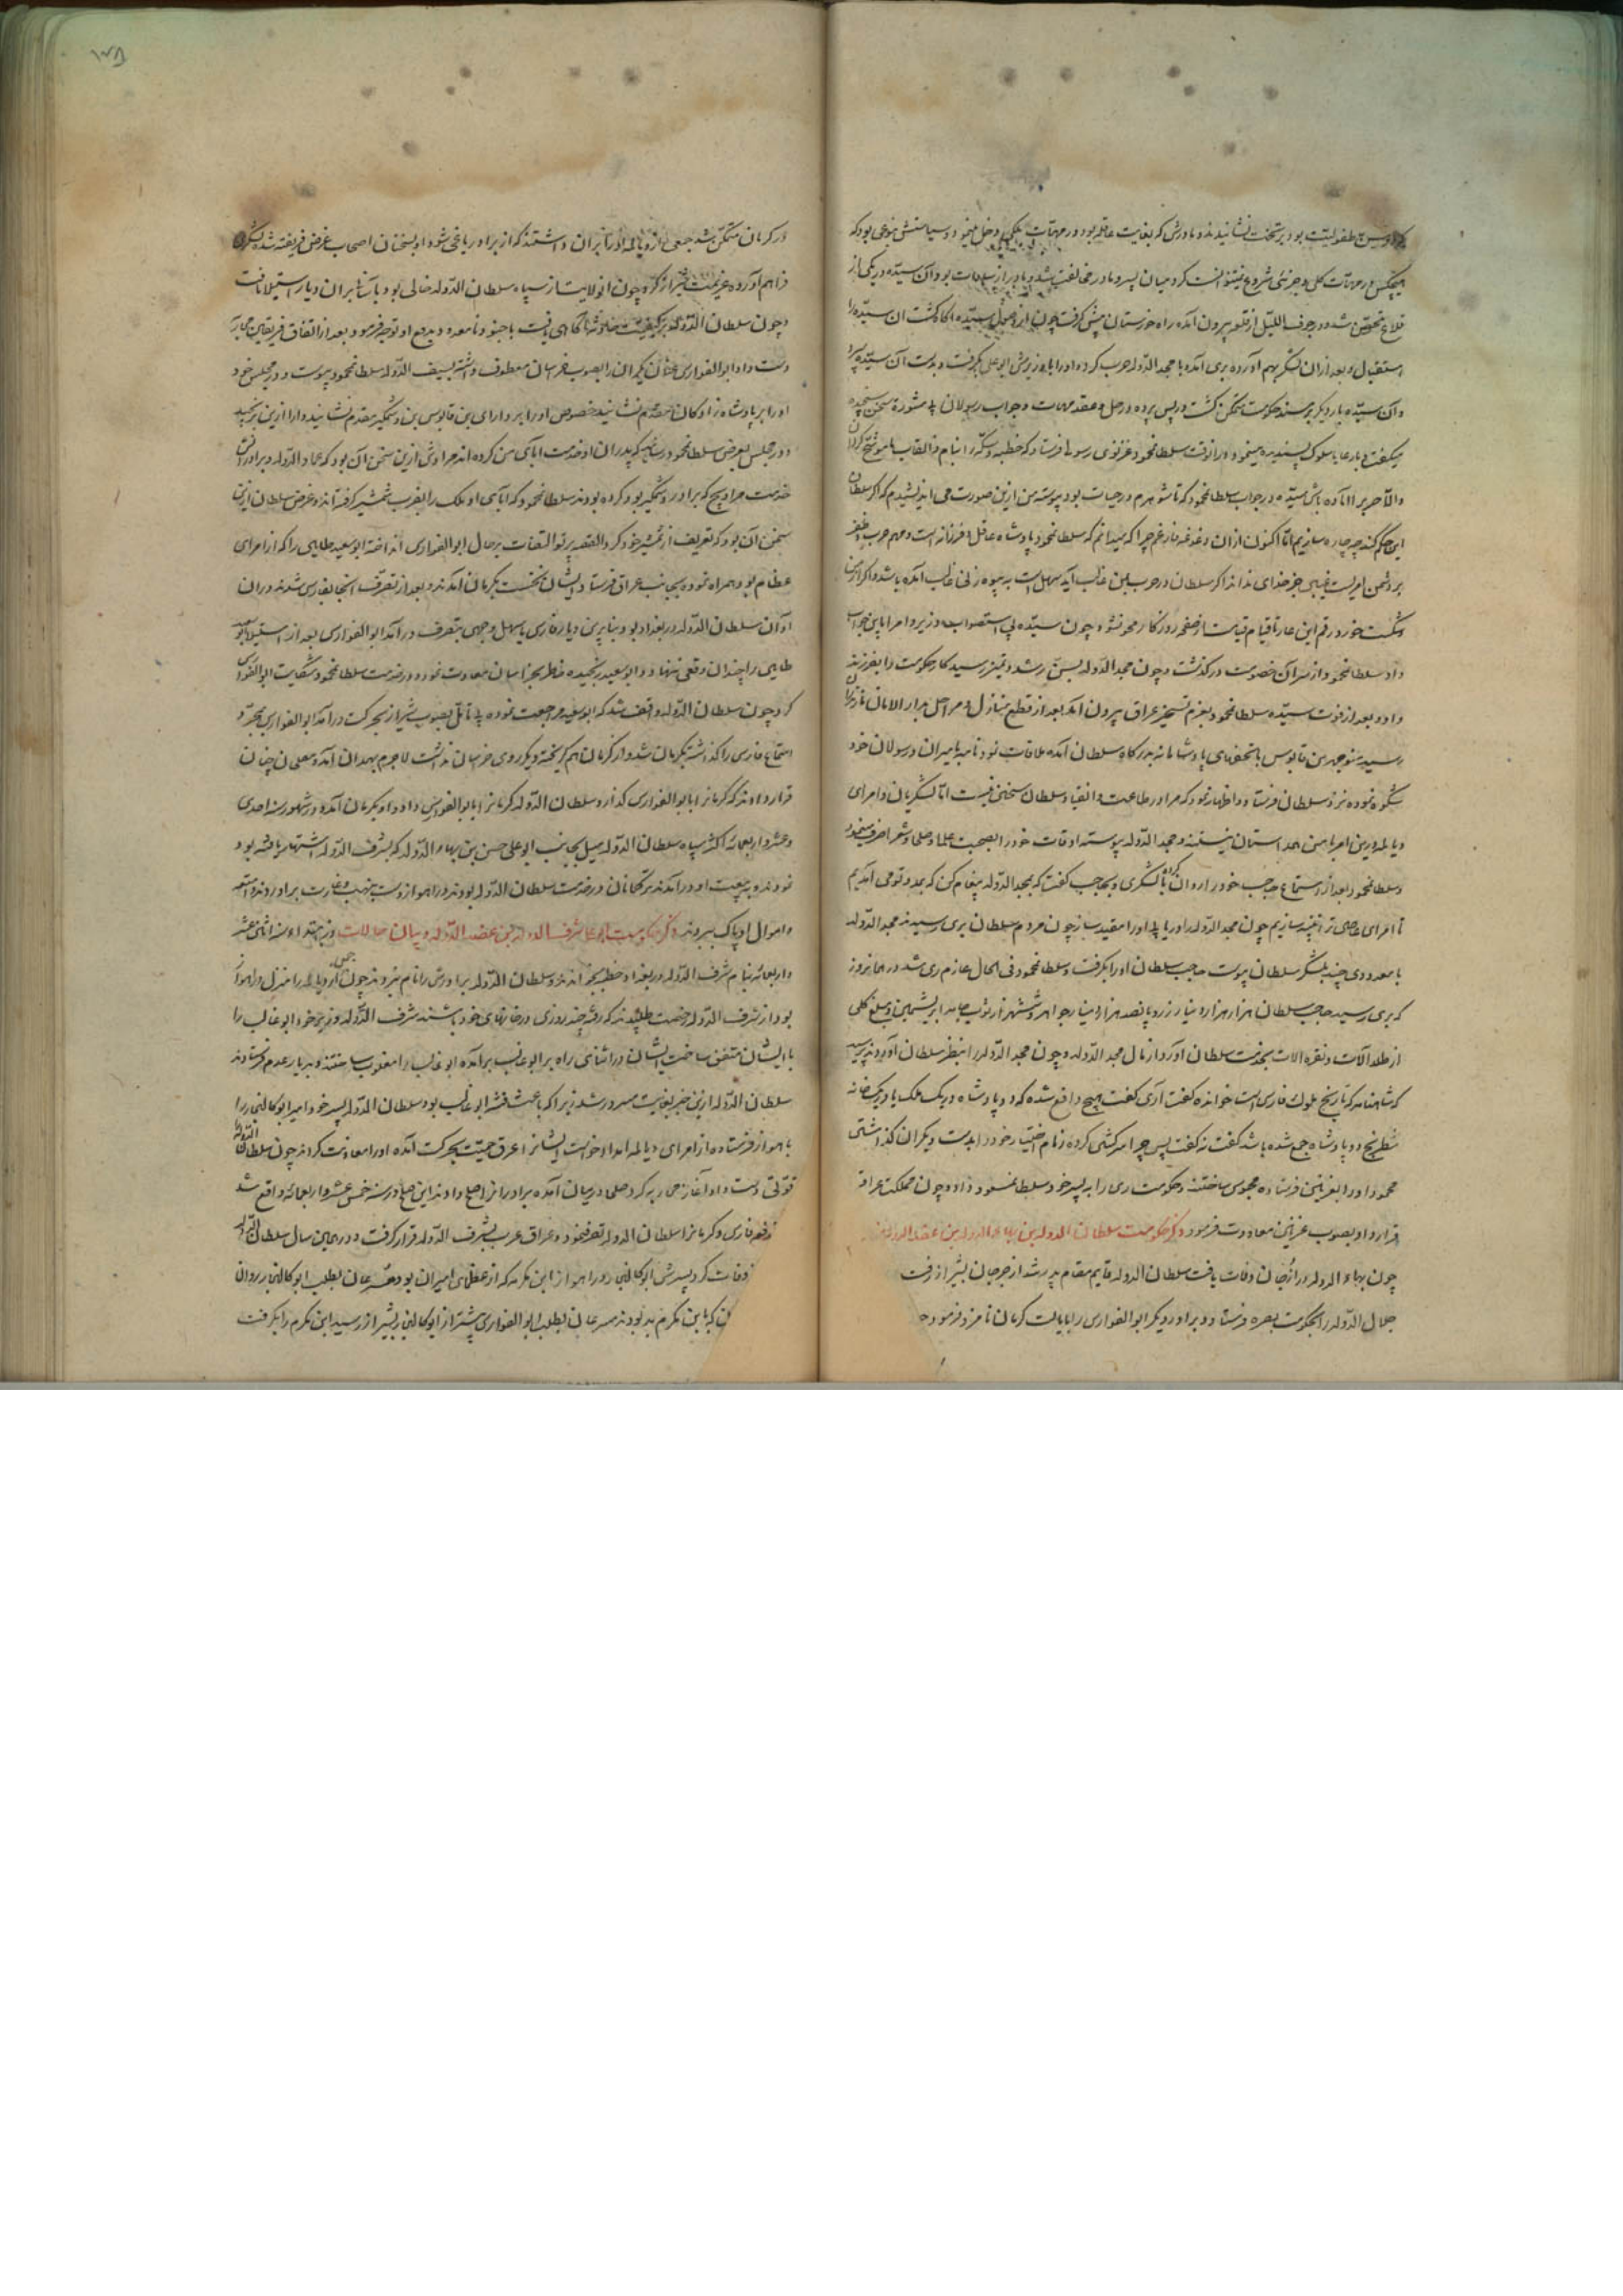 که در سن طفولیت بود بر تخت نشانیدند و مادرش که بغایت عاقله بود در مهمات ملکی دخل مینمود و سیاستش بنوعی بود که
هیچکس در مهمات کلی و جزئی شروع نمیتوانست کرد میان پسر و مادر مخالفت شد و مادر از سادات بود و آن سیده در یکی از
قلاع متحصن شد و در جوف اللیل از قلعه بیرون آمده راه خوزستان پیش گرفت چون سیده
استقبال و بعد از آن لشکر بهم آورده بری آمده با مجد الدوله حرب کرده او را با وزیرش ابو علی بگرفت و بدست آن سیده سپرد
و آن سیده بار دیگر بر مسند حکومت متمکن گشت در پس پرده در حل و عقد مهمات و جواب رسولان بی مشورة سخن سنجیده
میگفت و با رعایا سلوک پسندیده مینمود در آنوقت سلطان محمود غزنوی رسولی فرستاد که خطبه و سکه را بنام و القاب ما موشح گردان
والا حرب را آماده باش سیده در جواب سلطان محمود که تا شوهرم در حیات بود پیوسته من ازین صورت می اندیشیدم که اگر سلطان
این حکم کند چه چاره سازیم اما اکنون از آن دغدغه فارغم چرا که میدانم که سلطان محمود پادشاه عاقل و فرزانه است و مهم حرب و ظفر
بر دشمن امریست غیبی جز خدای نداند اگر سلطان در حرب بمن غالب آید سهل است به بیوه زنی غالب آمده باشد و اگر از من
شکست خورد رقم این عار تا قیام قیامت از صفحه روزگار محو نشود چون سیده بی استصواب وزیر و امرا این جواب
داد سلطان محمود از سر آن خصومت در گذشت و چون مجد الدوله بسن رشد و تمیز رسید کار حکومت را بفرزند
داد و بعد از فوت سیده سلطان محمود بعزم تسخیر عراق بیرون آمد بعد از قطع منازل و مراحل
رسید منوچهر بن قابوس با تحفهای پادشاهانه بدرگاه سلطان آمده ملاقات نمود نامه با میران و رسولان خود
شکوه نموده نزد سلطان فرستاد و اظهار نمود که مرا در طاعت و انقیاد سلطان سخنی نیست اما لشکریان و امرای
دیالمه درین امر با من همداستان نیستند و مجد الدوله پیوسته اوقات خود را بصحبت علما و صلحا و شعرا صرف مینمود
و سلطان محمود بعد از استماع حاجب خود را روان کرد با لشکری و بحاجب گفت که بمجد الدوله پیغام کن که بمدد تو می آئیم
تا امرای عاصی ترا تنبیه سازیم چون مجد الدوله را دریابی او را مقید ساز چون مردم سلطان بری رسیدند مجد الدوله
با معدودی چند بلشکر سلطان پیوست حاجب سلطان او را بگرفت و سلطان محمود فی الحال عازم ری شد در همانروز
که بری رسید حاجب سلطان هزار هزار دینار زر و پانصد هزار دینار جواهر و شش هزار ثوب جامه ابریشمین و مبلغ کلی
از طلا آلات و نقره آلات بخدمت سلطان آورد از مال مجد الدوله و چون مجد الدوله را بنظر سلطان آوردند پرسید
که شاهنامه که تاریخ ملوک فارس است خوانده گفت آری گفت هیچ واقع شده که دو پادشاه در یک ملک یا در یک خانه
شطرنج دو پادشاه جمع شده باشد گفت نه گفت پس چرا سرکشی کرده زمام اختیار خود را بدست دیگران گذاشتی
محمود او را بغزنین فرستاده محبوس ساختند و حکومت ری را به پسر خود سلطان مسعود داد و چون مملکت عراق
قرار داد بصوب غزنین معاودت فرمود ذکر حکومت سلطان الدوله بن بهاء الدوله بن عضد الدوله
چون بهاء الدوله در ارجان وفات یافت سلطان الدوله قایم مقام پدر شد از جرجان بشیراز رفت
جلال الدوله را بحکومت بصره فرستاد و برادر دیگر ابو الفوارس را بایالت کرمان نامزد فرمود چ
در کرمان متمکن شد جمعی از دیالمه او را بر آن داشتند که از برادر یاغی شود او بسخنان اصحاب غرض فریفته شد لشکر
فراهم آورده عزیمت شیراز کرد و چون آنولایت از سپاه سلطان الدوله خالی بود بآسانی بر آن دیار استیلا یافت
و چون سلطان الدوله بر کیفیت آگاهی یافت با جنود نامعدود بدفع او توجه فرمود بعد از اتفاق فریقین محاربه
دست داد ابو الفوارس عنان یکران را بصوب خراسان معطوف داشته بسیف الدوله سلطان محمود پیوست و در مجلس خود
او را بر پادشاه زادگان مقدم نشانید خصوص او را بر دارای بن قابوس بن وشمگیر مقدم نشانید دارا ازین برنجید
و در مجلس بعرض سلطان محمود رسانید که پدران او خدمت آبای من کرده اند مرادش ازین سخن آن بود که عماد الدوله و برادرانش
خدمت مرداویج که برادر وشمگیر بود کرده بودند سلطان محمود که آبای او ملک را بضرب شمشیر گرفته اند و غرض سلطان ازین
سخن آن بود که تعریف از شمشیر خود کرد و القصه پرتو التفات بر حال ابو الفوارس انداخته ابو سعید طایی را که از امرای
عظام بود همراه نموده بجانب عراق فرستاد ایشان نخست بکرمان آمدند و بعد از تصرف آنجا بفارس شدند در آن
اوان سلطان الدوله در بغداد بود بنابرین دیار فارس باسهل وجهی بتصرف در آمد ابو الفوارس بعد از استیلا ابو سعید
طایی را چندان وقعی ننهاد و ابو سعید رنجیده خاطر بخراسان معاودت نمود و در خدمت سلطان محمود شکایت ابو الفوارس
کرد چون سلطان الدوله واقف شد که ابو سعید مراجعت نموده بی تامل بصوب شیراز بحرکت در آمد ابو الفوارس بمجرد
استماع فارس را گذاشته بکرمان شد و از کرمان هم گریخته و دیگر روی خراسان نداشت لاجرم بهمدان آمد و مصلحان چنان
قرار دادند که کرمان را بابو الفوارس گذارد و سلطان الدوله کرمان را بابو الفوارس داد و او بکرمان آمده و در شهور سنه احدی
و عشر و اربعمائه اکثر سپاه سلطان الدوله میل بجانب ابو علی حسن بن بهاء الدوله که بشرف الدوله اشتهار یافته بود
نمودند و به بیعت او در آمدند ترکانان در خدمت سلطان الدوله بودند در اهواز دست بنهب و غارت بر آوردند و امتعه
و اموال او پاک ببردند ذکر حکومت ابو علی شرف الدوله بن عضد الدوله و بیان حالات در ابتداء سنه اثنی عشر
و اربعمائه بنام شرف الدوله در بغداد خطبه بخواندند و سلطان الدوله برادرش را نام نبردند چون جمعی از دیالمه را منزل در اهواز
بود از شرف الدوله رخصت طلبیدند که رفته چند روزی در خانهای خود باشند شرف الدوله وزیر خود ابو غالب را
با ایشان متفق ساخت ایشان در اثنای راه بر ابو غالب بر آمده ابو غالب را مغلوب ساختند و بدیار عدم فرستادند
سلطان الدوله ازین خبر بغایت مسرور شد زیرا که باعث فتنه ابو غالب بود سلطان الدوله پسر خود امیر ابو کالنجار را
باهواز فرستاده از امرای دیالمه امداد خواست ایشانرا عرق حمیت بحرکت آمده او را معاونت کردند چون سلطان الدوله را
قوتی دست داد آغاز محاربه کرد صلحا در میان آمده برادران را صلح دادند این صلح در سنه خمس عشر و اربعمائه واقع شد
فارس و کرمان را سلطان الدوله تصرف نمود و عراق عرب بشرف الدوله قرار گرفت و در همین سال سلطان الدوله
وفات کرد پسرش ابو کالنجار در اهواز ابن مکرم که از عظمای امیران بود بطلب ابو کالنجار روان
که با ابن مکرم بد بودند بطلب ابو الفوارس پیشتر از ابو کالنجار بشیراز رسید ابن مکرم را بگرفت